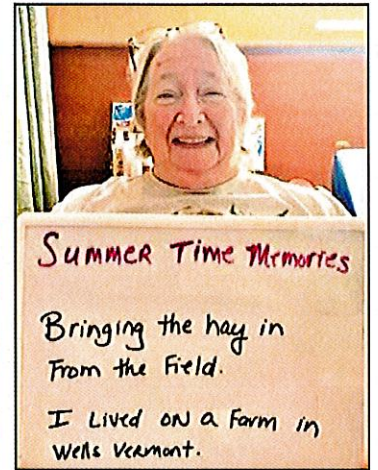 Summer Time Memories
Bringing the hay in
From the Field.
I Lived on a Farm in
Wells Vermont.